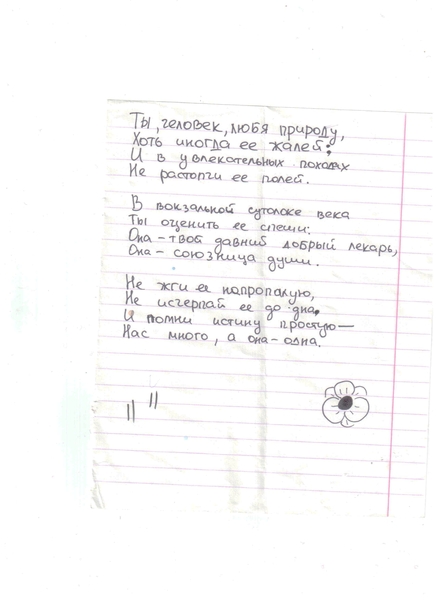 Ты, человек, любя природу,
Хоть иногда ее жалей;
И в увлекательных походах
Не растопчи ее полей.
В вокзальной сутолоке века
Ты оценить ее спеши:
Она – твой давний добрый лекарь,
Она – союзница души.
Не жги ее напропалую,
Не исчерпай ее до дна.
И помни истину простую –
Нас много, а она – одна.